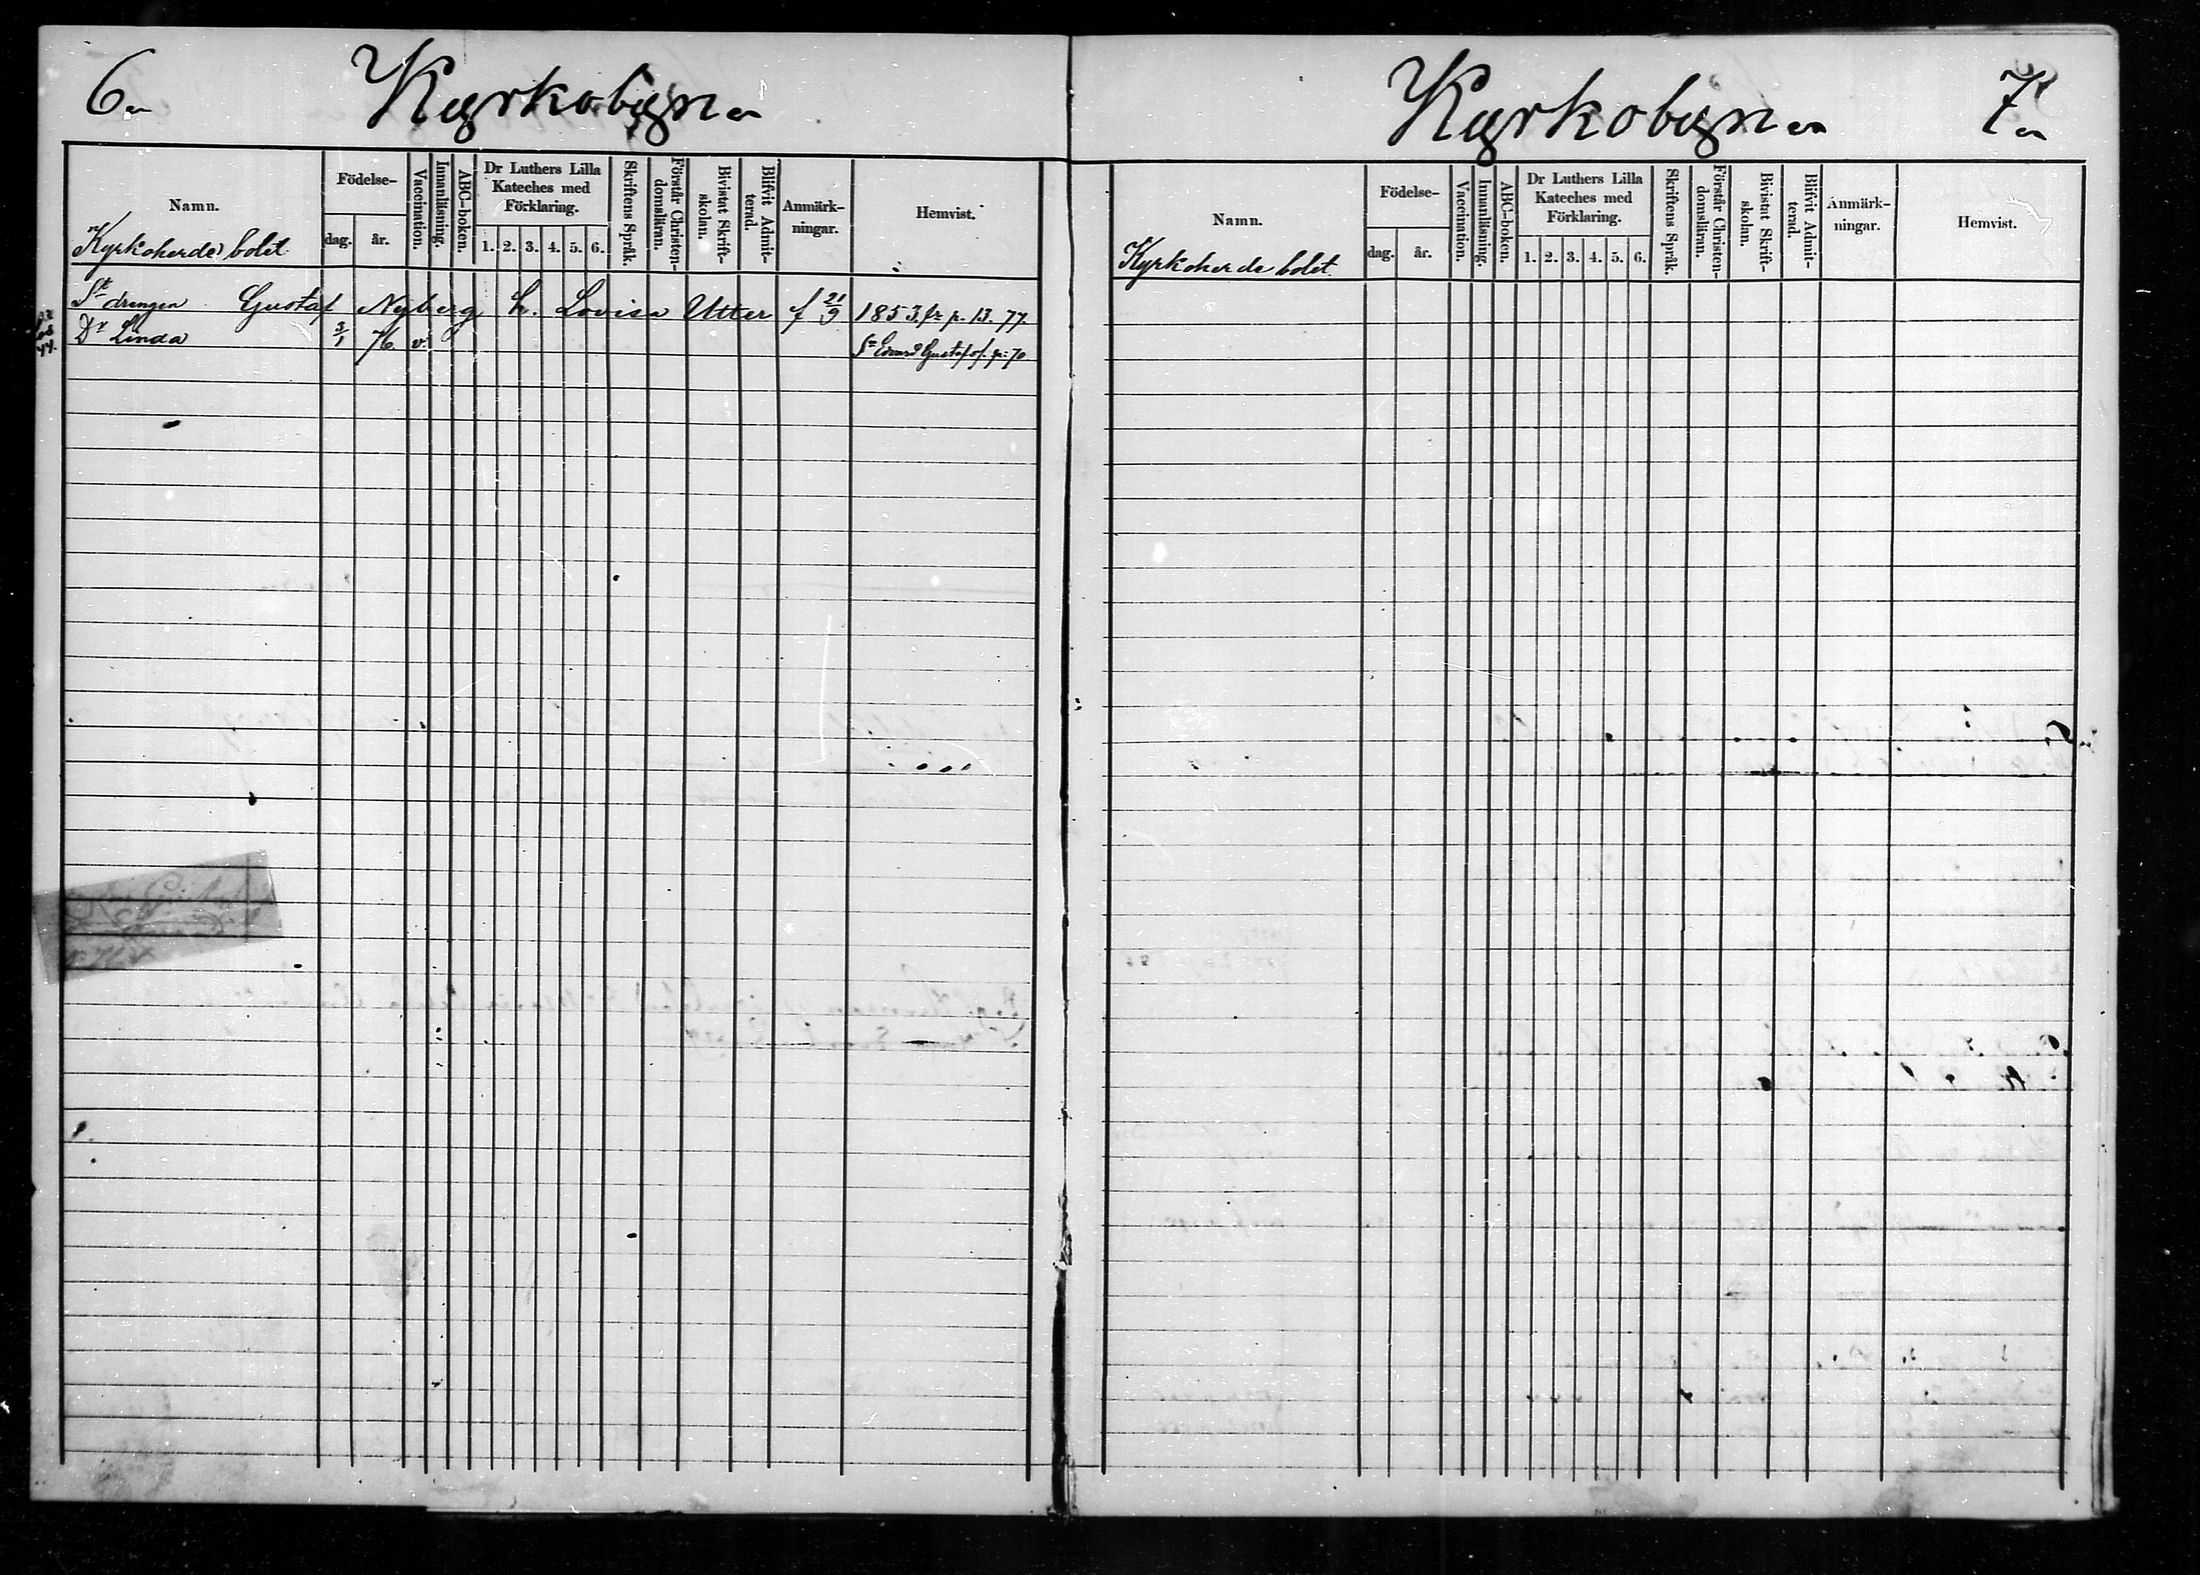 6.
Kyrkobyn.
Namn.
Födelse-
dag.
år.
Vaccination.
Innanläsning.
ABC-boken.
Dr Luthers Lilla
Kateches med
Förklaring.
1. 2. 3. 4. 5. 6.
Skriftens Språk.
Förstår Christen-
domsläran.
Bivistat Skrift-
skolan.
Blifvit Admit-
terad.
Anmärk-
ningar.
Hemvist.
Kyrkoherdebolet
St drengen Gustaf Nyberg h. Lovisa Utter f 21/9 1853. fr p. 13. 77.
Dr Linda 3/1 76 v. Sn Edvard Gustaf of. p: 70
Kyrkobyn.
7.
Namn.
Födelse-
dag.
år.
Vaccination.
Innanläsning.
ABC-boken.
Dr Luthers Lilla
Kateches med
Förklaring.
1. 2. 3. 4. 5. 6.
Skriftens Språk.
Förstår Christen-
domsläran.
Bivistat Skrift-
skolan.
Blifvit Admit-
terad.
Anmärk-
ningar.
Hemvist.
Kyrkoherdebolet